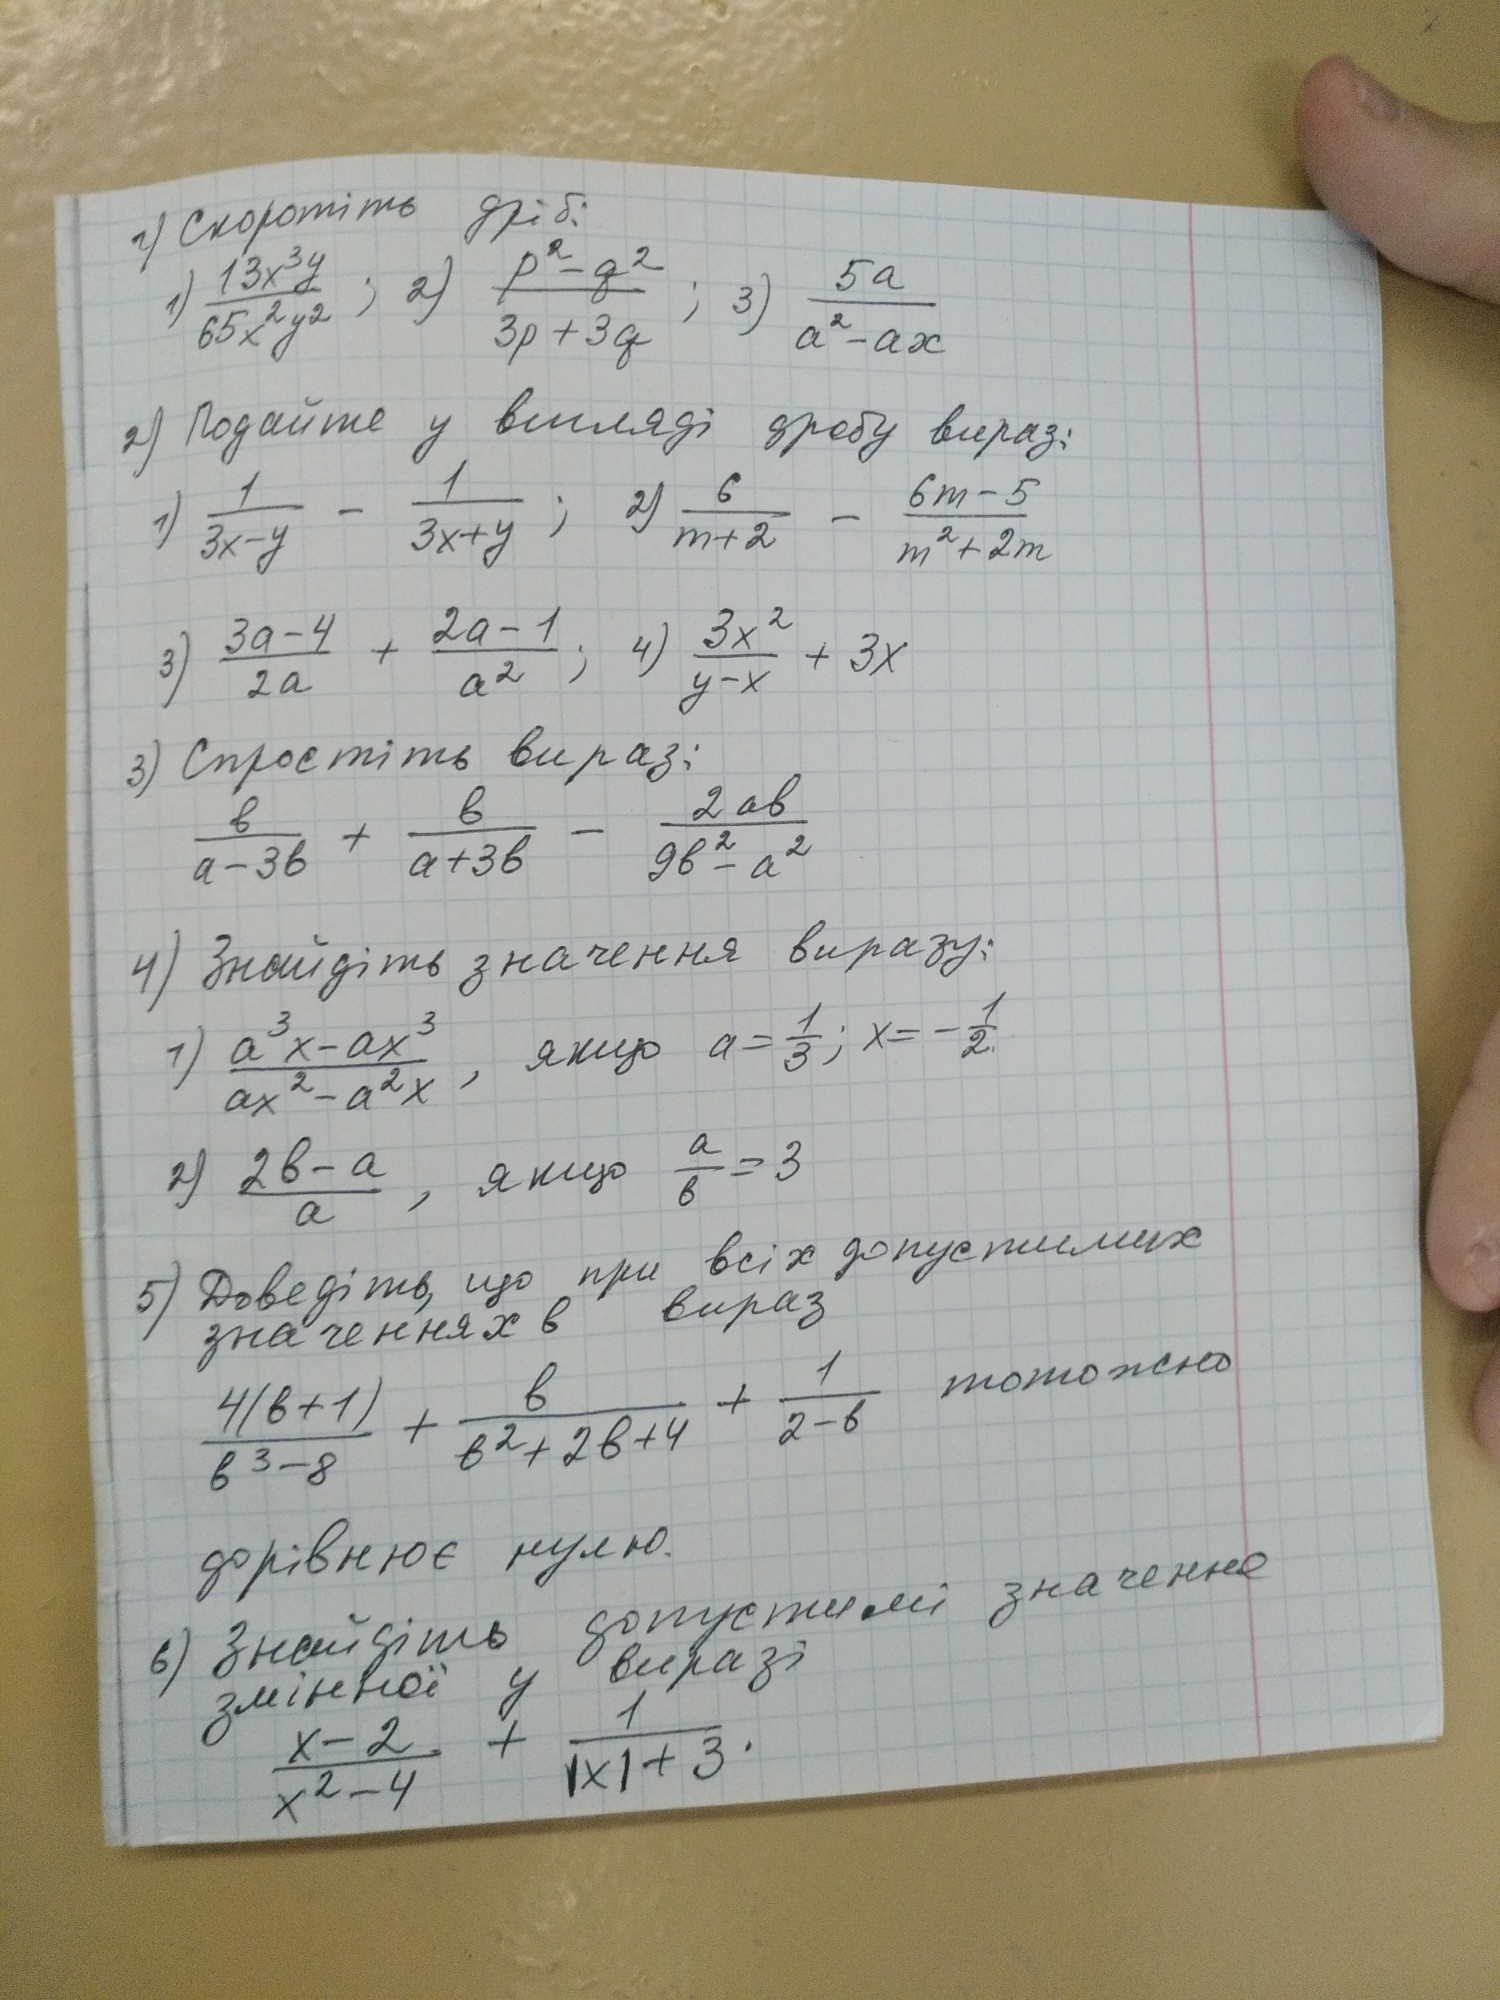 1) Скоротіть дріб:
1) 13x³y/65x²y²; 2) p²-q²/3p+3q; 3) 5a/a²-ax
2) Подайте у вигляді дробу вираз:
1) 1/3x-y - 1/3x+y; 2) 6/m+2 - 6m-5/m²+2m
3) 3a-4/2a + 2a-1/a²; 4) 3x²/y-x + 3x
3) Спростіть вираз:
в/a-3в + в/a+3в - 2aв/9в²-a²
4) Знайдіть значення виразу:
1) a³x-ax³/ax²-a²x, якщо a=1/3; x=-1/2.
2) 2в-a/a, якщо a/в=3
5) Доведіть, що при всіх допустимих
значеннях в вираз
4(в+1)/в³-8 + в/в²+2в+4 + 1/2-в тотожно
дорівнює нулю.
6) Знайдіть допустимі значення
змінної у виразі
x-2/x²-4 + 1/|x|+3.